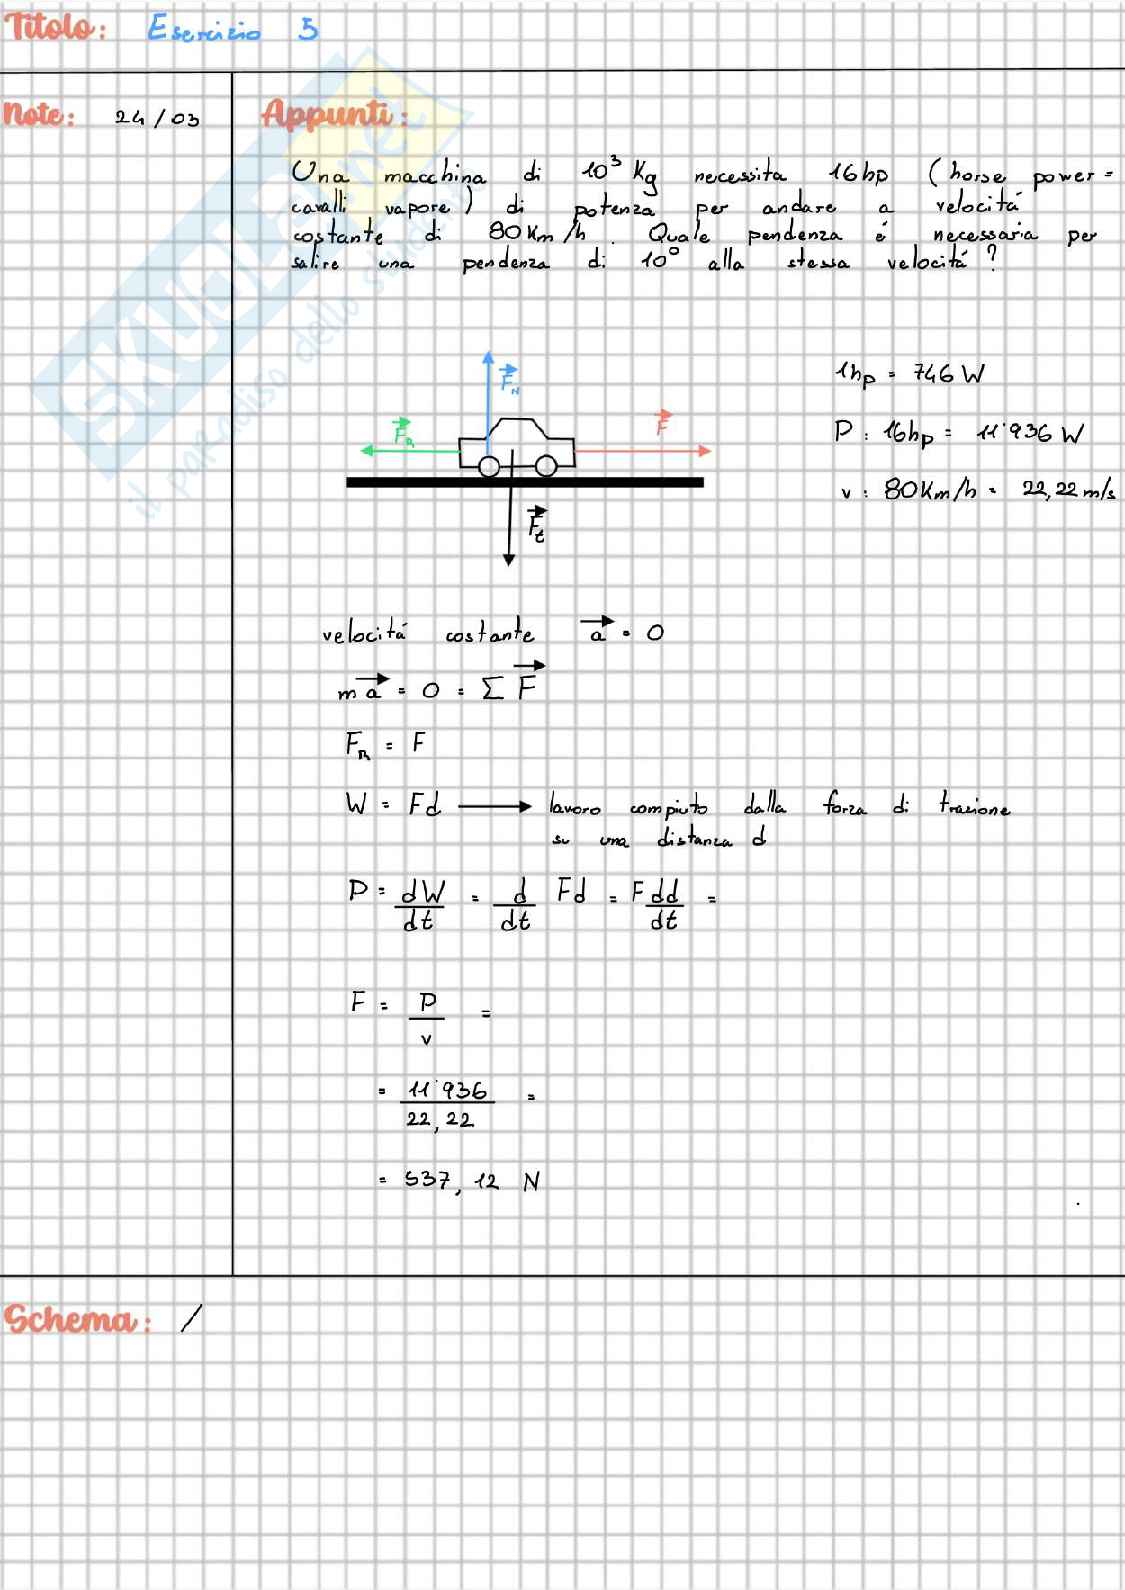 Titolo: Esercizio 5
Note: 24/03
Appunti:
Una macchina di 10³ Kg necessita 16hp (horse power =
cavalli vapore) di potenza per andare a velocitá
costante di 80Km/h. Quale pendenza é necessaria per
salire una pendenza di 10° alla stessa velocitá?
1hp = 746 W
P: 16hp = 11'936 W
v: 80Km/h = 22,22 m/s
F_N
F_R
F
F_t
velocitá costante a = 0
ma = 0 = Σ F
F_R = F
W = Fd → lavoro compiuto dalla forza di trazione
su una distanza d
P = dW/dt = d/dt Fd = F dd/dt =
F = P/v =
= 11'936/22,22 =
= 537,12 N
Schema: /
SKUOLA.net
il paradiso dello studente